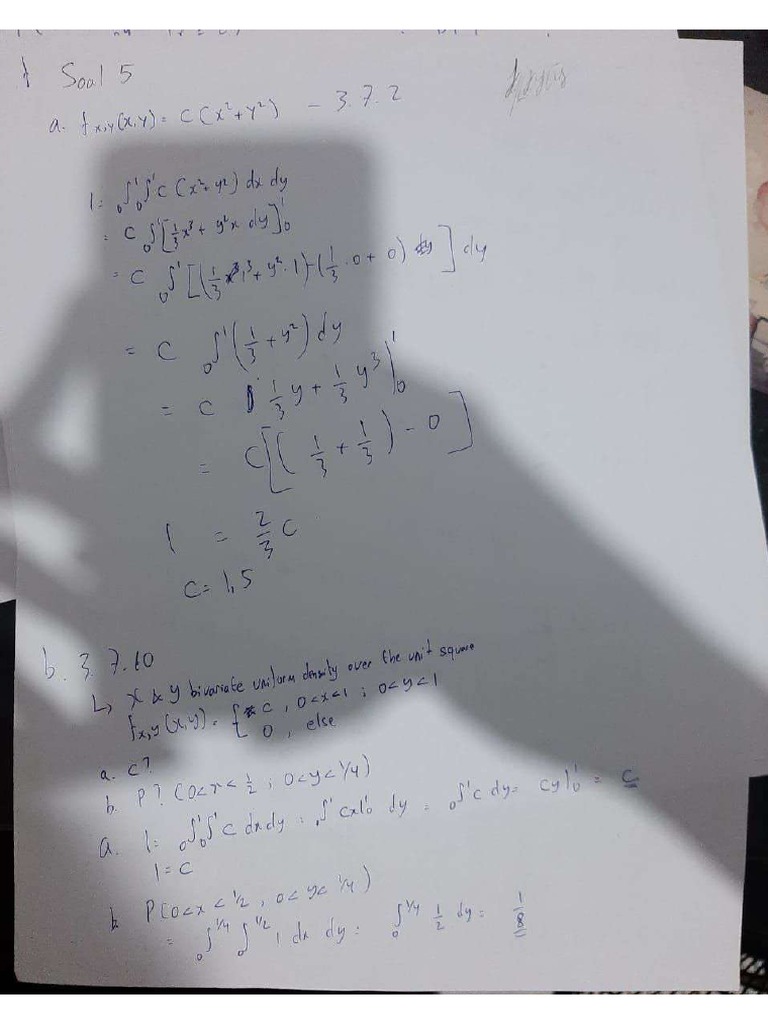 Soal 5
a. f_{x,y}(x,y) = C (x² + y²) - 3.7.2
1 = ₀∫¹ ₀∫¹ C (x² + y²) dx dy
= C ₀∫¹ [1/3 x³ + y²x dy]₀¹
= C ₀∫¹ [(1/3 · 1³ + y² · 1) - (1/3 · 0 + 0)] dy
= C ₀∫¹ (1/3 + y²) dy
= C 1/3 y + 1/3 y³ |₀¹
= C[(1/3 + 1/3) - 0]
1 = 2/3 C
C = 1,5
b. 3.7.10
↳ X & Y bivariate uniform density over the unit square
f_{x,y}(x,y) = { C, 0<x<1 ; 0<y<1
0, else
a. C?
b. P? (0<x<1/2 ; 0<y<1/4)
a. 1 = ₀∫¹ ₀∫¹ C dx dy = ₀∫¹ Cx|₀¹ dy = ₀∫¹ C dy = Cy|₀¹ = C
1 = C
b. P(0<x<1/2, 0<y<1/4)
= ₀∫^{1/4} ₀∫^{1/2} 1 dx dy = ₀∫^{1/4} 1/2 dy = 1/8